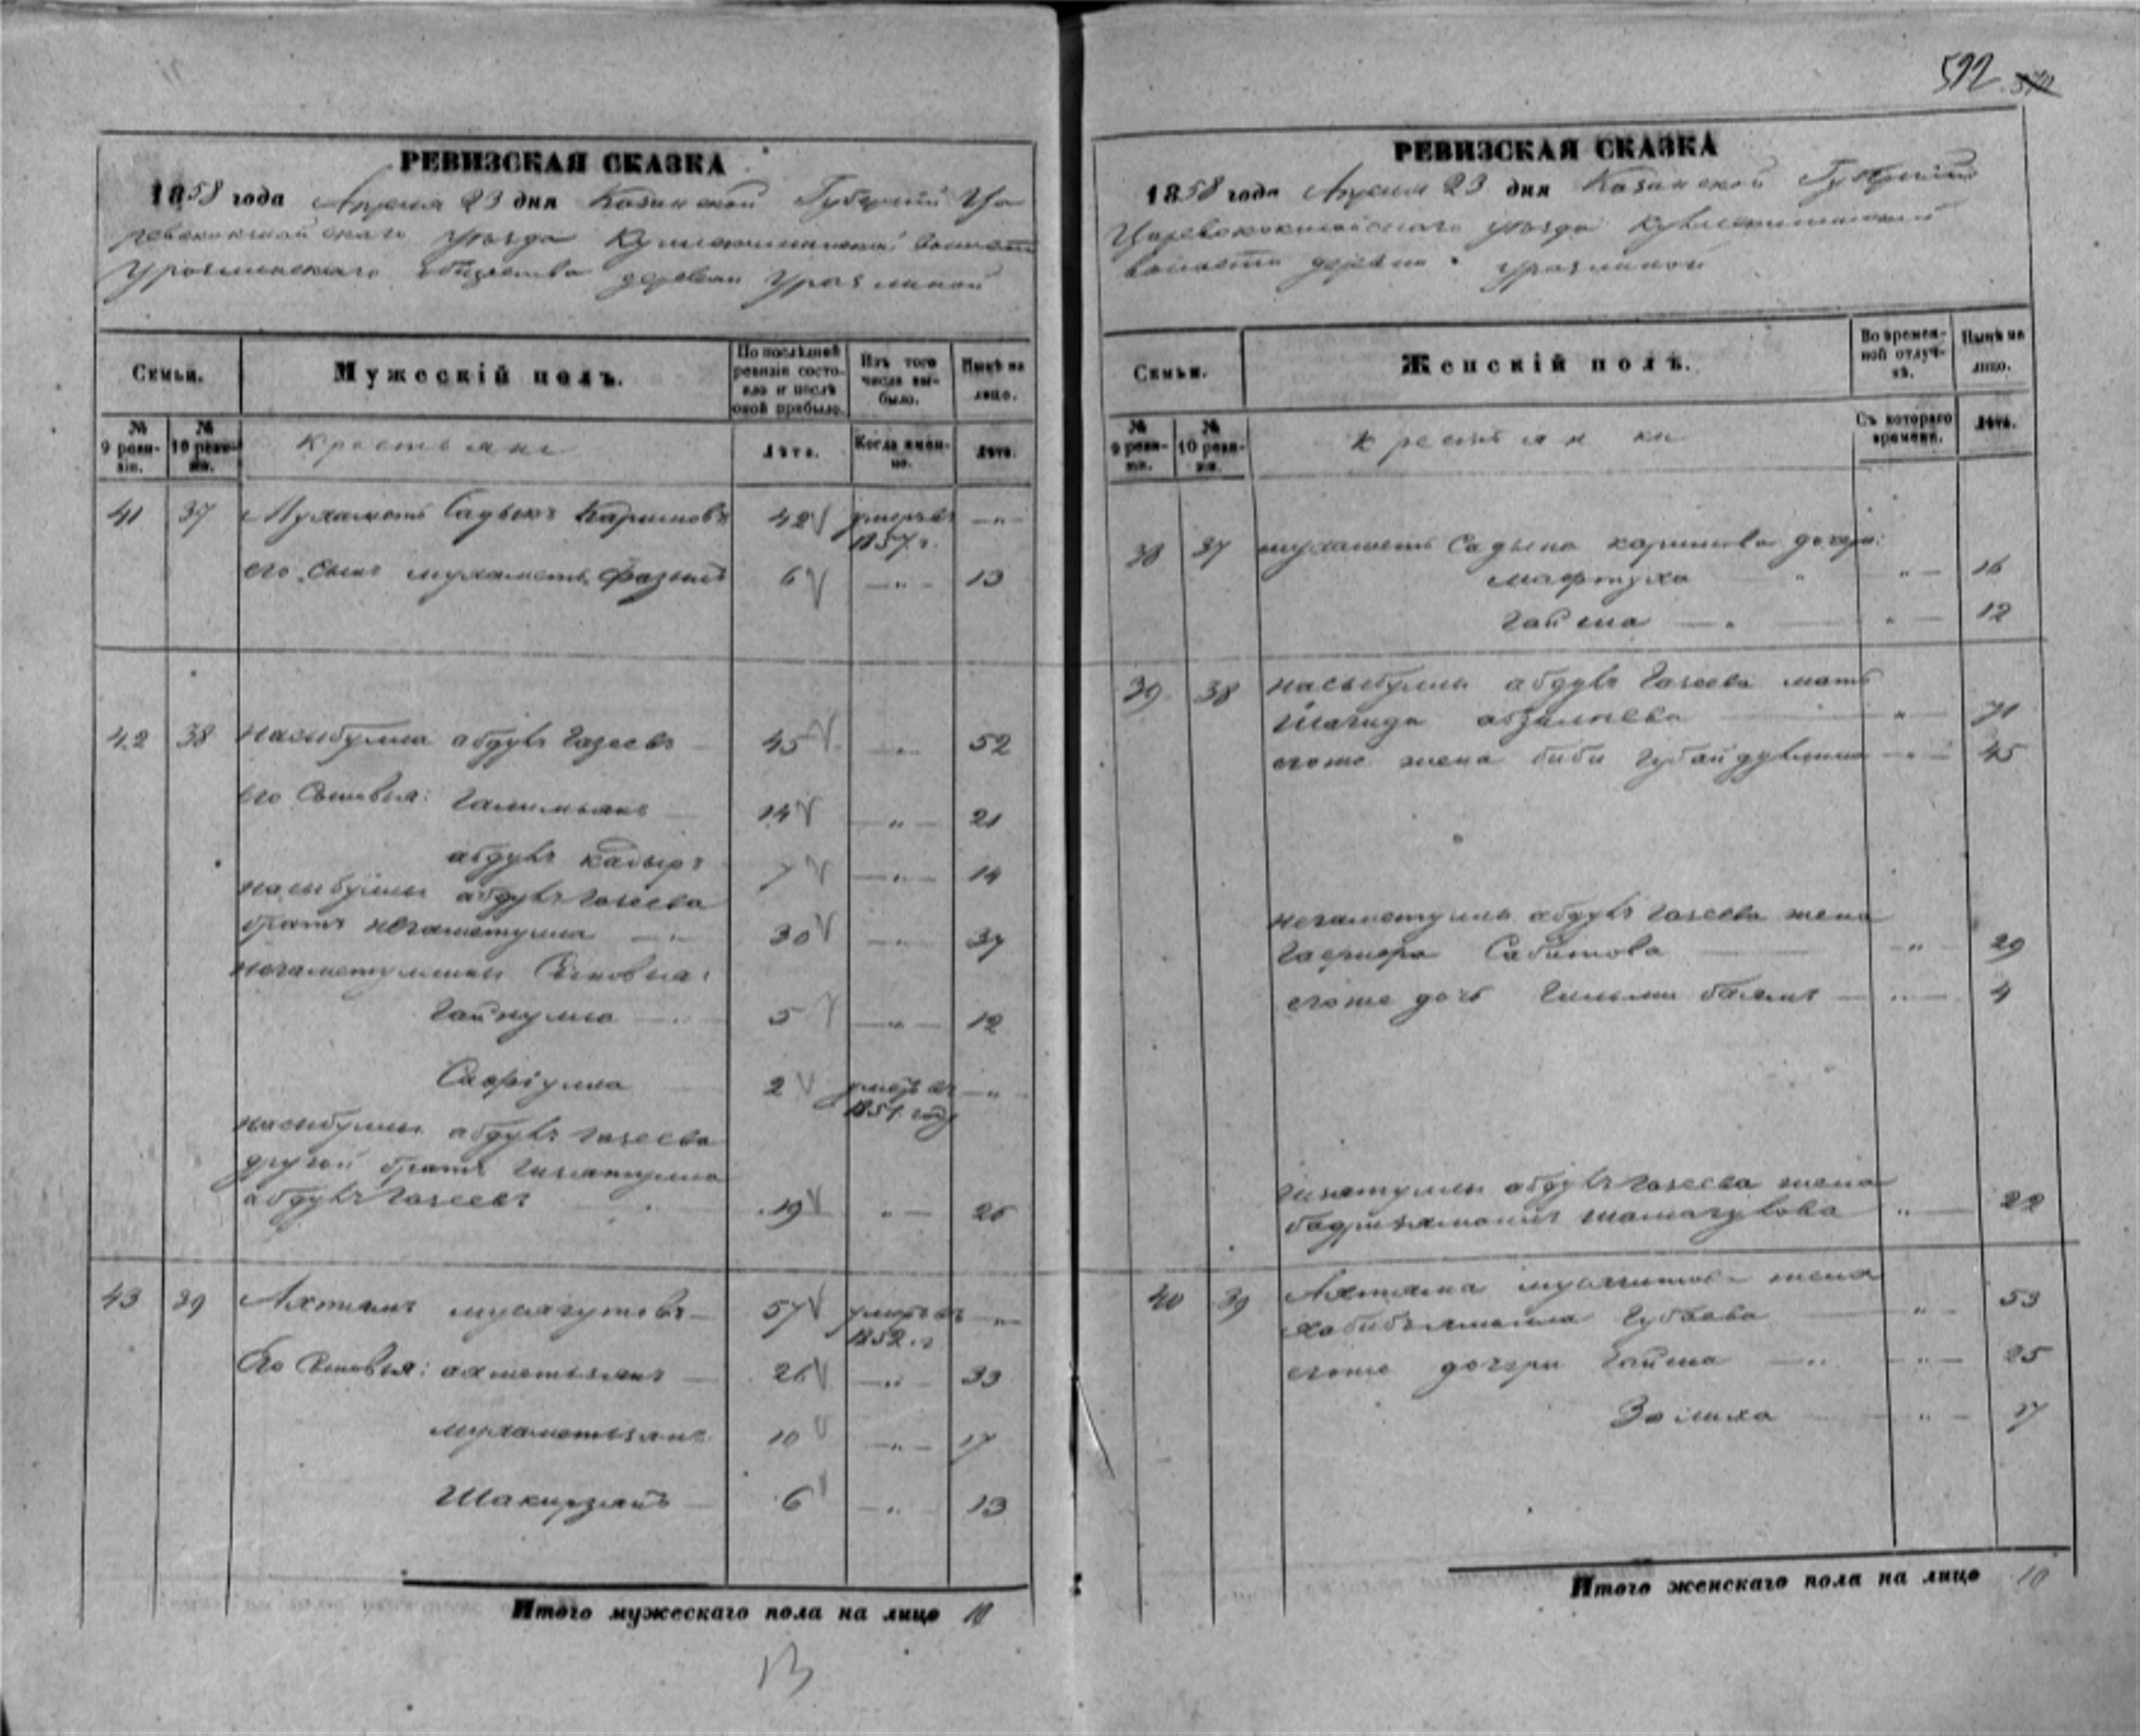 592 572
РЕВИЗСКАЯ СКАЗКА
1858 года Апреля 23 дня Казанской Губерніи Ца
ревококшайскаго уѣзда волости
Уразлинскаго общества деревни Уразлиной
Семьи.
Мужескій полъ.
По послѣдней ревизіи состояло и послѣ оной прибыло.
Изъ того числа выбыло.
Нынѣ на лицо.
№ 9 ревизіи.
№ 10 ревизіи.
Крестьяне
Лѣта.
Когда именно.
Лѣта.
41 37 Мухаметъ Садыкъ Каримовъ 42 умеръ въ 1857 г. — " —
его сынъ мухаметъ Фазылъ 6 — " — 13
42 38 Насыбулла абдулъ Газеевъ — 45 — " — 52
его Сыновья: Галимьянъ 14 — " — 21
абдулъ Кадыръ 7 — " — 14
насыбуллы абдулъ Газеева
братъ негаметулла — " — 30 — " — 37
негаметуллины Сыновья:
Гайнулла — " — 5 — " — 12
Сафіулла 2 умеръ въ 1851 году — " —
насыбуллы абдулъ Газеева
другой братъ Гизатулла
абдулъ Газеевъ 19 " — 26
43 39 Ахтямъ — 57 умеръ въ 1852 г. — " —
Его Сыновья: ахметзянъ — 26 — " — 33
мухаметзянъ 10 — " — 17
Шакирзянъ — 6 — " — 13
Итого мужескаго пола на лицо 10
13
РЕВИЗСКАЯ СКАЗКА
1858 года Апреля 23 дня Казанской Губерніи
Царевококшайскаго уѣзда
волости деревни Уразлиной
Семьи.
Женскій полъ.
Во временной отлучкѣ.
Нынѣ на лицо.
№ 9 ревизіи.
№ 10 ревизіи.
Крестьянки
Съ котораго времени.
Лѣта.
38 37 мухаметъ Садыка каримова дочери:
мафтуха " " — 16
Гайша — " — " — 12
39 38 насыбуллы абдулъ Газеева мать
Шагида — " 71
егоже жена биби Губайдуллина — " — 45
негаметуллы абдулъ Газеева жена
Сабитова — " 29
егоже дочь — " — 4
Гизатуллы абдулъ Газеева жена
бадризямалъ " — 22
40 39 Ахтяма жена
Губаева — " — 53
егоже дочери Гайша — " — — " — 25
Залиха — " — 17
Итого женскаго пола на лицо 10